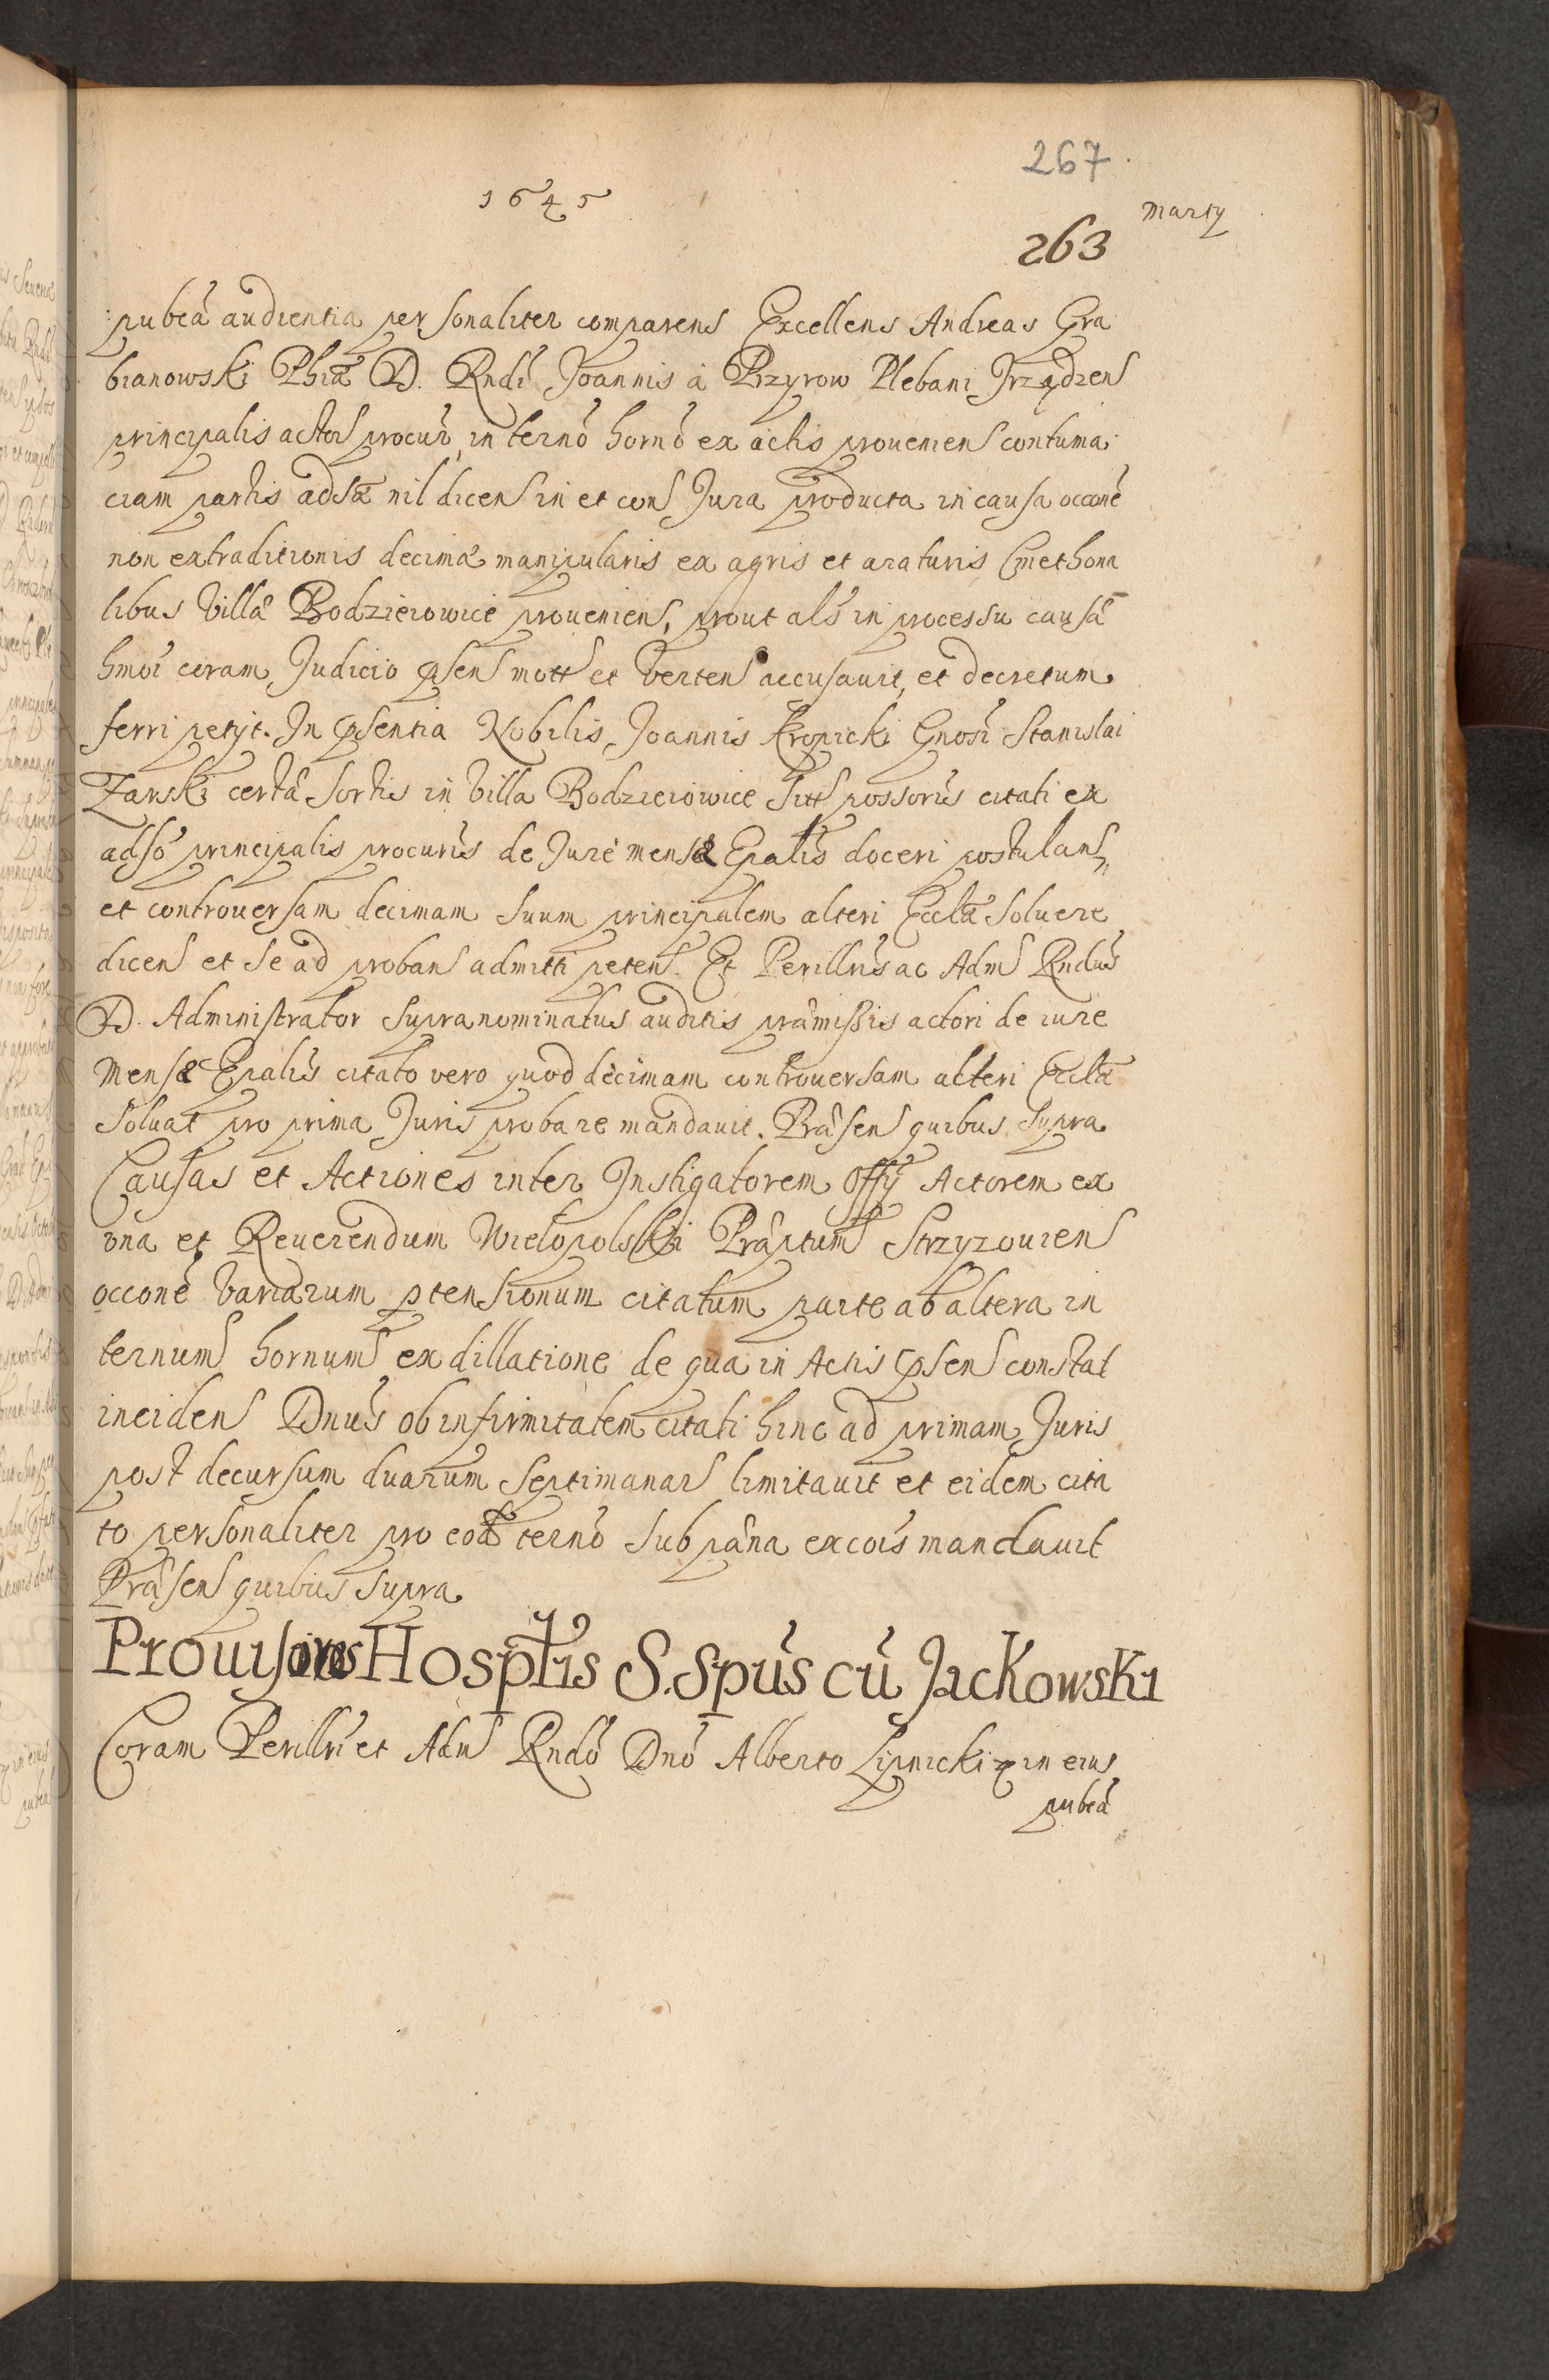 267.
1645
Marty
263
pubca audientia personaliter comparens Excellens Andreas Gra
bianowski Phiæ D. Rndi Joannis à Przyrow Plebani Irządzens
principalis actors procur, in terno horno ex actis proueniens contuma
ciam partis adsæ nil dicens in et cons Jura producta in causa occone
non extraditionis decimæ manipularis ex agris et araturis Cmethona
libus villæ Bodzieiowice proueniens, prout als in processu causæ
hmoi coram Judicio psens mott et vertens accusauit, et decretum
ferri petyt. In psentia Nobilis Joannis Kropicki Gnosi Stanislai
Zarski certæ sortis in villa Bodzieiowice sitt possoris citati ex
adso principalis procuris de Jure mensæ Epalis doceri postulans
et controuersam decimam suum principalem alteri Ecclæ soluere
dicens et se ad probans admitti petens. Et Perillris ac Adms Rndus
D. Administrator supranominatus auditis præmissis actori de iure
mensæ Epalis citato vero quod decimam controuersam alteri Ecclæ
soluat pro prima Juris probare mandauit. Præsens quibus supra
Causas et Actiones inter Instigatorem Offy Actorem ex
vna et Reuerendum Wielopolski Præptum Strzyzouiens
occone variarum ptensionum citatum parte ab altera in
ternums hornums ex dillatione de qua in Actis psens constat
incidens Dnus ob infirmitatem citati hinc ad primam Juris
post decursum duarum septimanars limitauit et eidem cita
to personaliter pro eod terno sub pæna excois mandauit
Præsens quibus supra
Prouisores Hosptlis S. Spus cu Jackowski
Coram Perillri et Adm Rndo Dno Alberto Lipnicki &c in eius
pubca